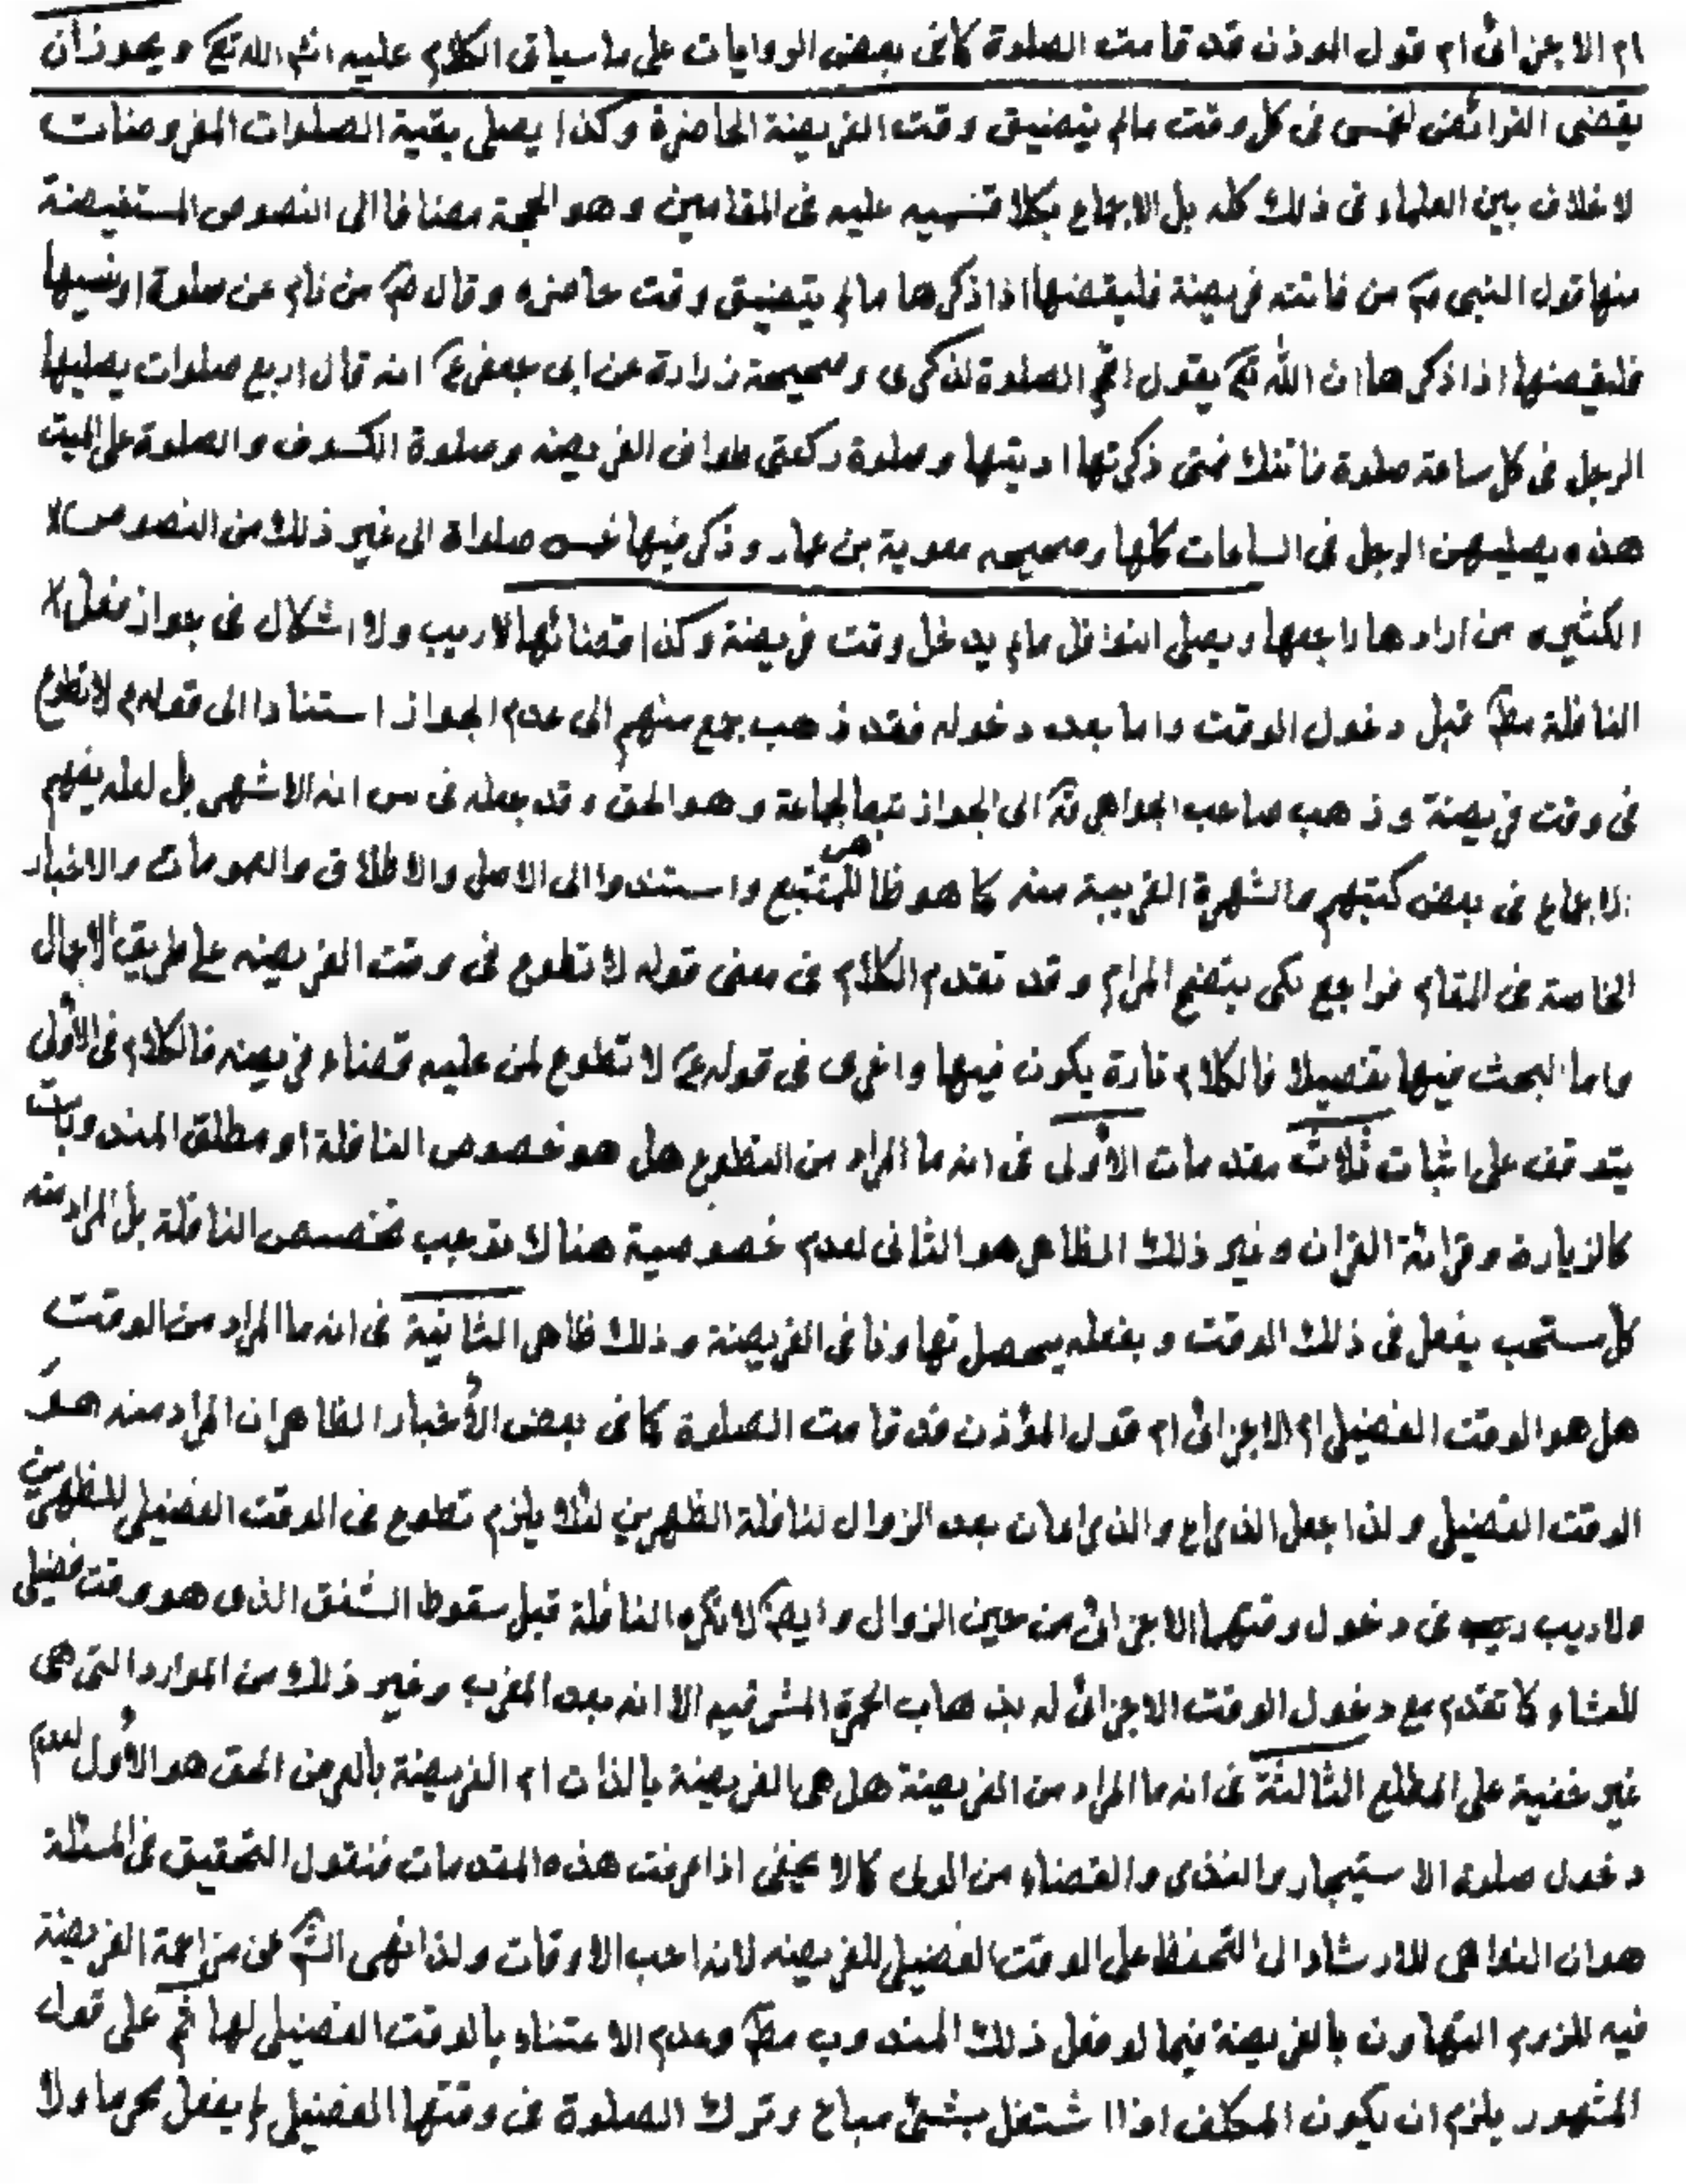 ام الاجزائى ام قول الموذن قد قامت الصلوة كما فى بعض الروايات على ما سياتى الكلام عليه انشاء الله تع و يجوز ان
يقضى الفرائض الخمس فى كل وقت مالم يتضيق وقت الفريضة الحاضرة وكذا يصلى بقية الصلوات المفروضات
لا خلاف بين العلماء فى ذلك كله بل الاجماع بكلا قسميه عليه فى المقامين وهو الحجة مضافا الى النصوص المستفيضة
منها قول النبى ص من فاتته فريضة فليقضها اذا ذكرها مالم يتضيق وقت حاضره وقال ص من نام عن صلوة او نسيها
فليقضها اذا ذكرها ان الله تع يقول اقم الصلوة لذكرى وصحيحة زرارة عن ابى جعفر ع انه قال اربع صلوات يصليها
الرجل فى كل ساعة صلوة فاتتك فمتى ذكرتها اديتها وصلوة ركعتى طواف الفريضه وصلوة الكسوف والصلوة على الميت
هذه يصليهن الرجل فى الساعات كلها وصحيحه معوية بن عمار وذكر فيها خمس صلواة الى غير ذلك من النصوص
الكثيره من ارادها راجعها ويصلى النوافل مالم يدخل وقت فريضة وكذا قضائها لا ريب ولا اشكال فى جواز فعل
النافلة مط قبل دخول الوقت واما بعد دخوله فقد ذهب جمع منهم الى عدم الجواز استنادا الى قوله ع لا تطوع
فى وقت فريضة وذهب صاحب الجواهر قه الى الجواز تبعا لجماعة وهو الحق وقد جعله فى س انه الاشهر بل لعله يفهم
الاجماع فى بعض كتبهم والشهرة القريبة منه كما هو ظاهر للمتتبع واستندوا الى الاصل والاطلاق والعمومات والاخبار
الخاصة فى المقام فراجع لكى يتضح المرام وقد تقدم الكلام فى معنى قوله لا تطوع فى وقت الفريضه على طريق الاجمال
واما البحث فيها تفصيلا فالكلام تارة يكون فيها واخرى فى قوله ع لا تطوع لمن عليه قضاء فريضه فالكلام فى الاولى
يتوقف على اثبات ثلاث مقدمات الاولى فى انه ما المراد من التطوع هل هو خصوص النافلة او مطلق المندوبات
كالزيارة وقرائة القران وغير ذلك الظاهر هو الثانى لعدم خصوصية هناك توجب تخصص النافلة بل المراد منه
كل مستحب يفعل فى ذلك الوقت و بفعله يحصل تهاونا فى الفريضة وذلك ظاهر الثانية فى انه ما المراد من الوقت
هل هو الوقت الفضيلى ام الاجزائى ام قول المؤذن قد قامت الصلوة كما فى بعض الأخبار الظاهر ان المراد منه هو
الوقت الفضيلى ولذا جعل الذراع والذراعان بعد الزوال لنافلة الظهرين لئلا يلزم تطوع فى الوقت الفضيلى للظهرين
ولا ريب ريب فى دخول وقتهما الاجزائى من حين الزوال وايضا لا تكره النافلة قبل سقوط الشفق الذى هو وقت فضيلى
للعشاء كما تقدم مع دخول الوقت الاجزائى له بذهاب الحمرة المشرقيه الا انه بعد المغرب وغير ذلك من الموارد التى هى
غير خفية على المطلع الثالثة فى انه ما المراد من الفريضة هل هى الفريضة بالذات ام الفريضة بالعرض الحق هو الأول لعدم
دخول صلوة الاستيجار والنذر والقضاء من الولى كما لا يخفى اذا عرفت هذه المقدمات فنقول التحقيق فى المسئلة
هو ان النواهى للارشاد الى التحفظ على الوقت الفضيلى للفريضه لانه احب الاوقات ولذا نهى الش عن مزاحمة الفريضة
فيه للزوم التهاون بالفريضة فيما لو فعل ذلك المندوب مط وعدم الاعتناء بالوقت الفضيلى لها ثم على قول
المشهور يلزم ان يكون المكلف اذا اشتغل بشئ مباح وترك الصلوة فى وقتها الفضيلى لم يفعل محرما ولا